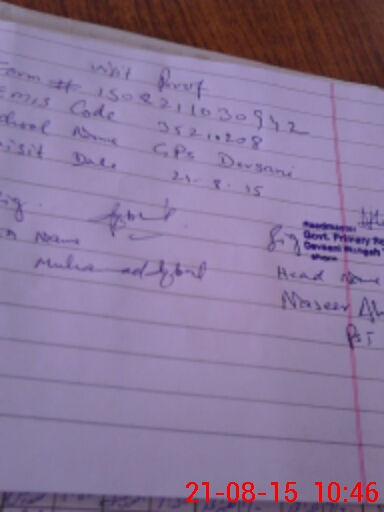 Visit Proof
Form # 1508211030942
EMIS Code 35210208
School Name GPS Devsani
Visit Date 21-8-15
Sig.
Name
Muhammad Iqbal
Sig
Headmaster
Govt. Primary
Head Name
Naseer
PST
21-08-15 10:46